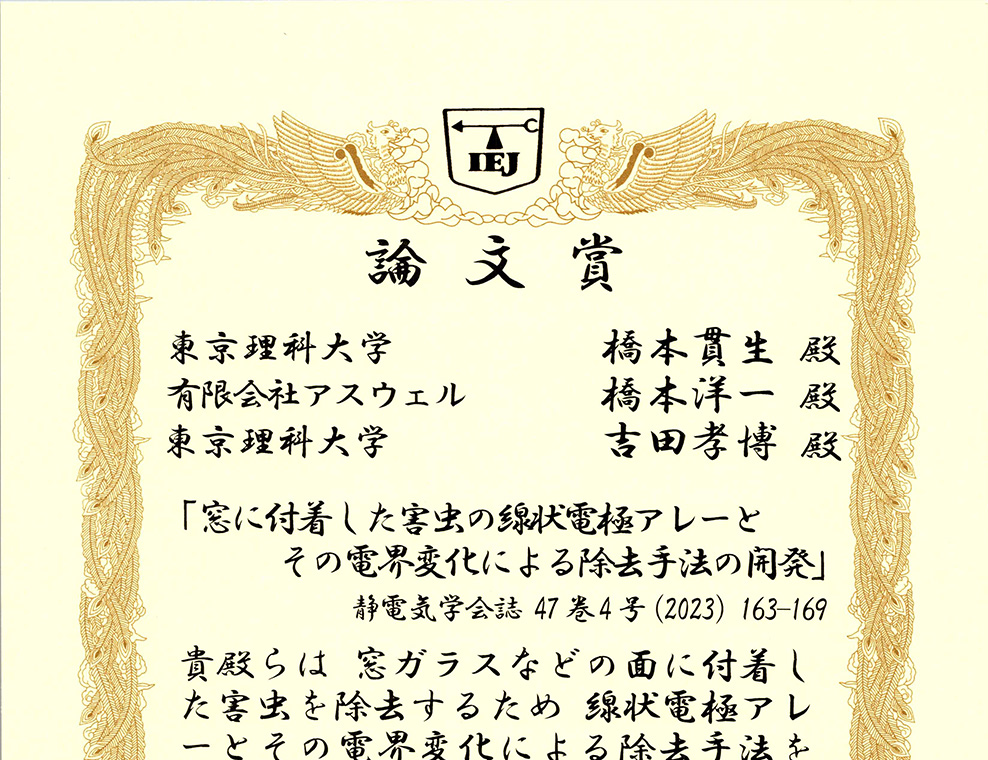 IEJ
論文賞
東京理科大学 橋本貫生 殿
有限会社アスウェル 橋本洋一 殿
東京理科大学 吉田孝博 殿
「窓に付着した害虫の線状電極アレーと
その電界変化による除去手法の開発」
静電気学会誌 47巻4号 (2023) 163-169
貴殿らは 窓ガラスなどの面に付着し
た害虫を除去するため 線状電極アレ
ーとその電界変化による除去手法を